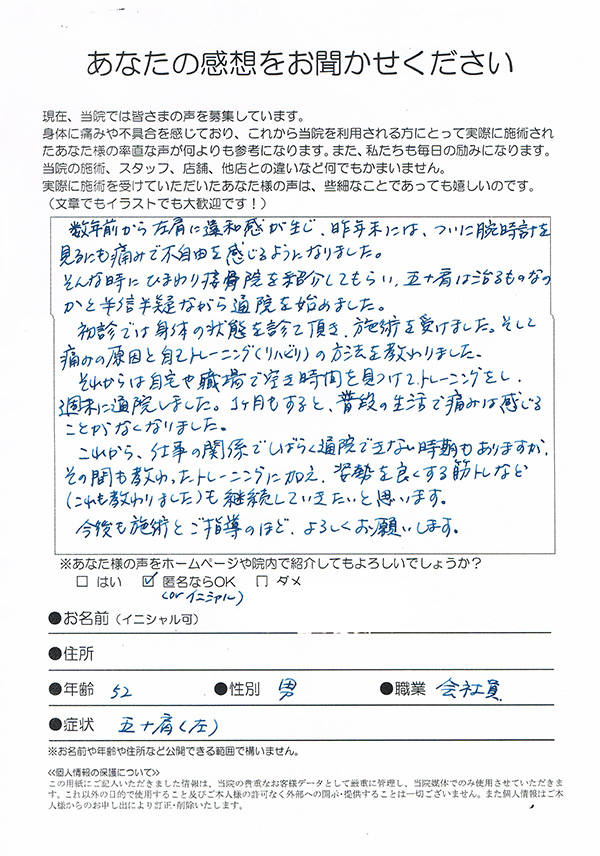 あなたの感想をお聞かせください
現在、当院では皆さまの声を募集しています。
身体に痛みや不具合を感じており、これから当院を利用される方にとって実際に施術され
たあなた様の率直な声が何よりも参考になります。また、私たちも毎日の励みになります。
当院の施術、スタッフ、店舗、他店との違いなど何でもかまいません。
実際に施術を受けていただいたあなた様の声は、些細なことであっても嬉しいのです。
（文章でもイラストでも大歓迎です！）
数年前から左肩に違和感が生じ、昨年末には、ついに腕時計を
見るにも痛みで不自由を感じるようになりました。
そんな時にひまわり接骨院を紹介してもらい、五十肩は治るものなの
かと半信半疑ながら通院を始めました。
初診では身体の状態を診て頂き、施術を受けました。そして
痛みの原因と自己トレーニング(リハビリ)の方法を教わりました。
それからは自宅や職場で空き時間を見つけて、トレーニングをし、
週末に通院しました。1ヶ月もすると、普段の生活で痛みは感じる
ことがなくなりました。
これから、仕事の関係でしばらく通院できない時期もありますが、
その間も教わったトレーニングに加え、姿勢を良くする筋トレなど
(これも教わりました)も継続していきたいと思います。
今後も施術とご指導のほど、よろしくお願いします。
※あなた様の声をホームページや院内で紹介してもよろしいでしょうか？
□ はい ☑ 匿名ならOK □ ダメ
(or イニシャル)
●お名前（イニシャル可）
●住所
●年齢 52 ●性別 男 ●職業 会社員
●症状 五十肩(左)
※お名前や年齢や住所など公開できる範囲で構いません。
≪個人情報の保護について≫
この用紙にご記入いただきました情報は、当院の貴重なお客様データとして厳重に管理し、当院媒体でのみ使用させていただきま
す。これ以外の目的で使用すること及びご本人様の許可なく外部への開示・提供することは一切ございません。また個人情報はご本
人様からのお申し出により訂正・削除いたします。